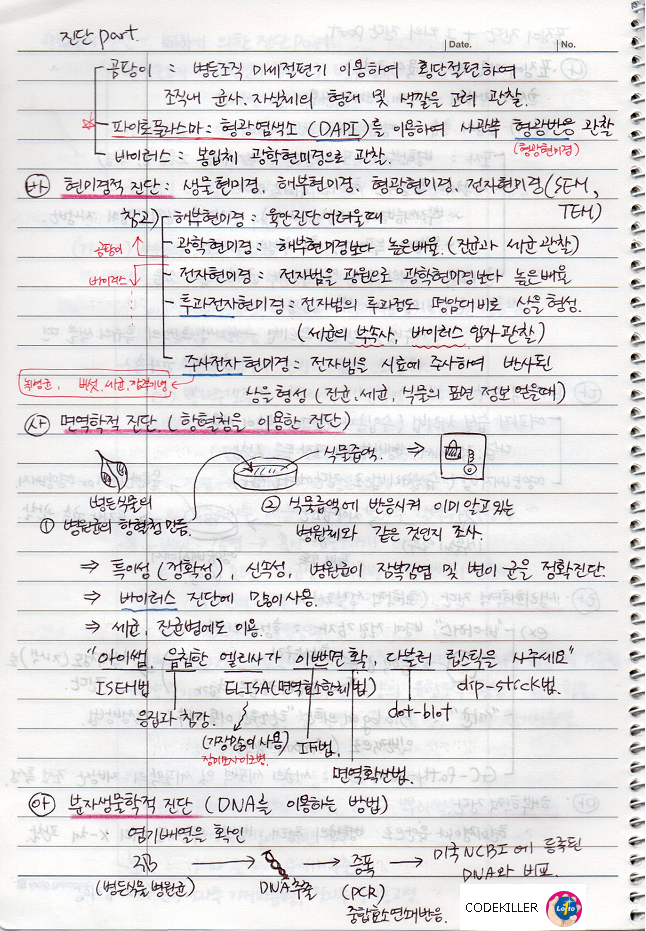 진단 part.
Date.
No.
곰팡이 : 병든조직 미세절편기 이용하여 횡단절편하여
조직내 균사. 자실체의 형태 및 색깔을 고려 관찰.
파이토플라스마 : 형광염색소 (DAPI)를 이용하여 사관부 형광반응 관찰
(형광현미경)
바이러스 : 봉입체 광학현미경으로 관찰.
바 현미경적 진단 : 생물현미경. 해부현미경. 형광현미경. 전자현미경(SEM,
TEM)
참고) 해부현미경 : 육안진단 어려울때
곰팡이
광학현미경 : 해부현미경보다 높은배율. (진균과 세균 관찰)
바이러스
전자현미경 : 전자빔을 광원으로 광학현미경보다 높은배율
투과전자현미경 : 전자빔의 투과정도 명암대비로 상을 형성.
(세균의 부속사, 바이러스 입자 관찰)
주사전자현미경 : 전자빔을 시료에 주사하여 반사된
버섯. 세균.
상을 형성 (진균. 세균. 식물의 표면 정보 얻을때)
사 면역학적 진단. (항혈청을 이용한 진단)
식물즙액. ⇒
병든식물의
① 병원균의 항혈청 만듬.
② 식물즙액에 반응시켜 이미 알고 있는
병원체와 같은 것인지 조사.
⇒ 특이성 (정확성), 신속성, 병원균이 잠복감염 및 병이 균을 정확진단.
⇒ 바이러스 진단에 많이 사용.
⇒ 세균. 진균병에도 이용.
"아이쌤, 음침한 엘리사가 이번면 확, 다블러 립스틱을 사주세요"
ISEM법
ELISA (면역효소항체법)
dip-stick법.
응집과 침강.
dot-blot
(가장많이 사용)
IF법.
면역확산법.
아 분자생물학적 진단 (DNA를 이용하는 방법)
염기배열을 확인
즙 → DNA추출 → 증폭 → 미국 NCBI에 등록된
DNA와 비교.
(병든식물, 병원균)
(PCR)
중합효소연쇄반응.
CODEKILLER
Lotto